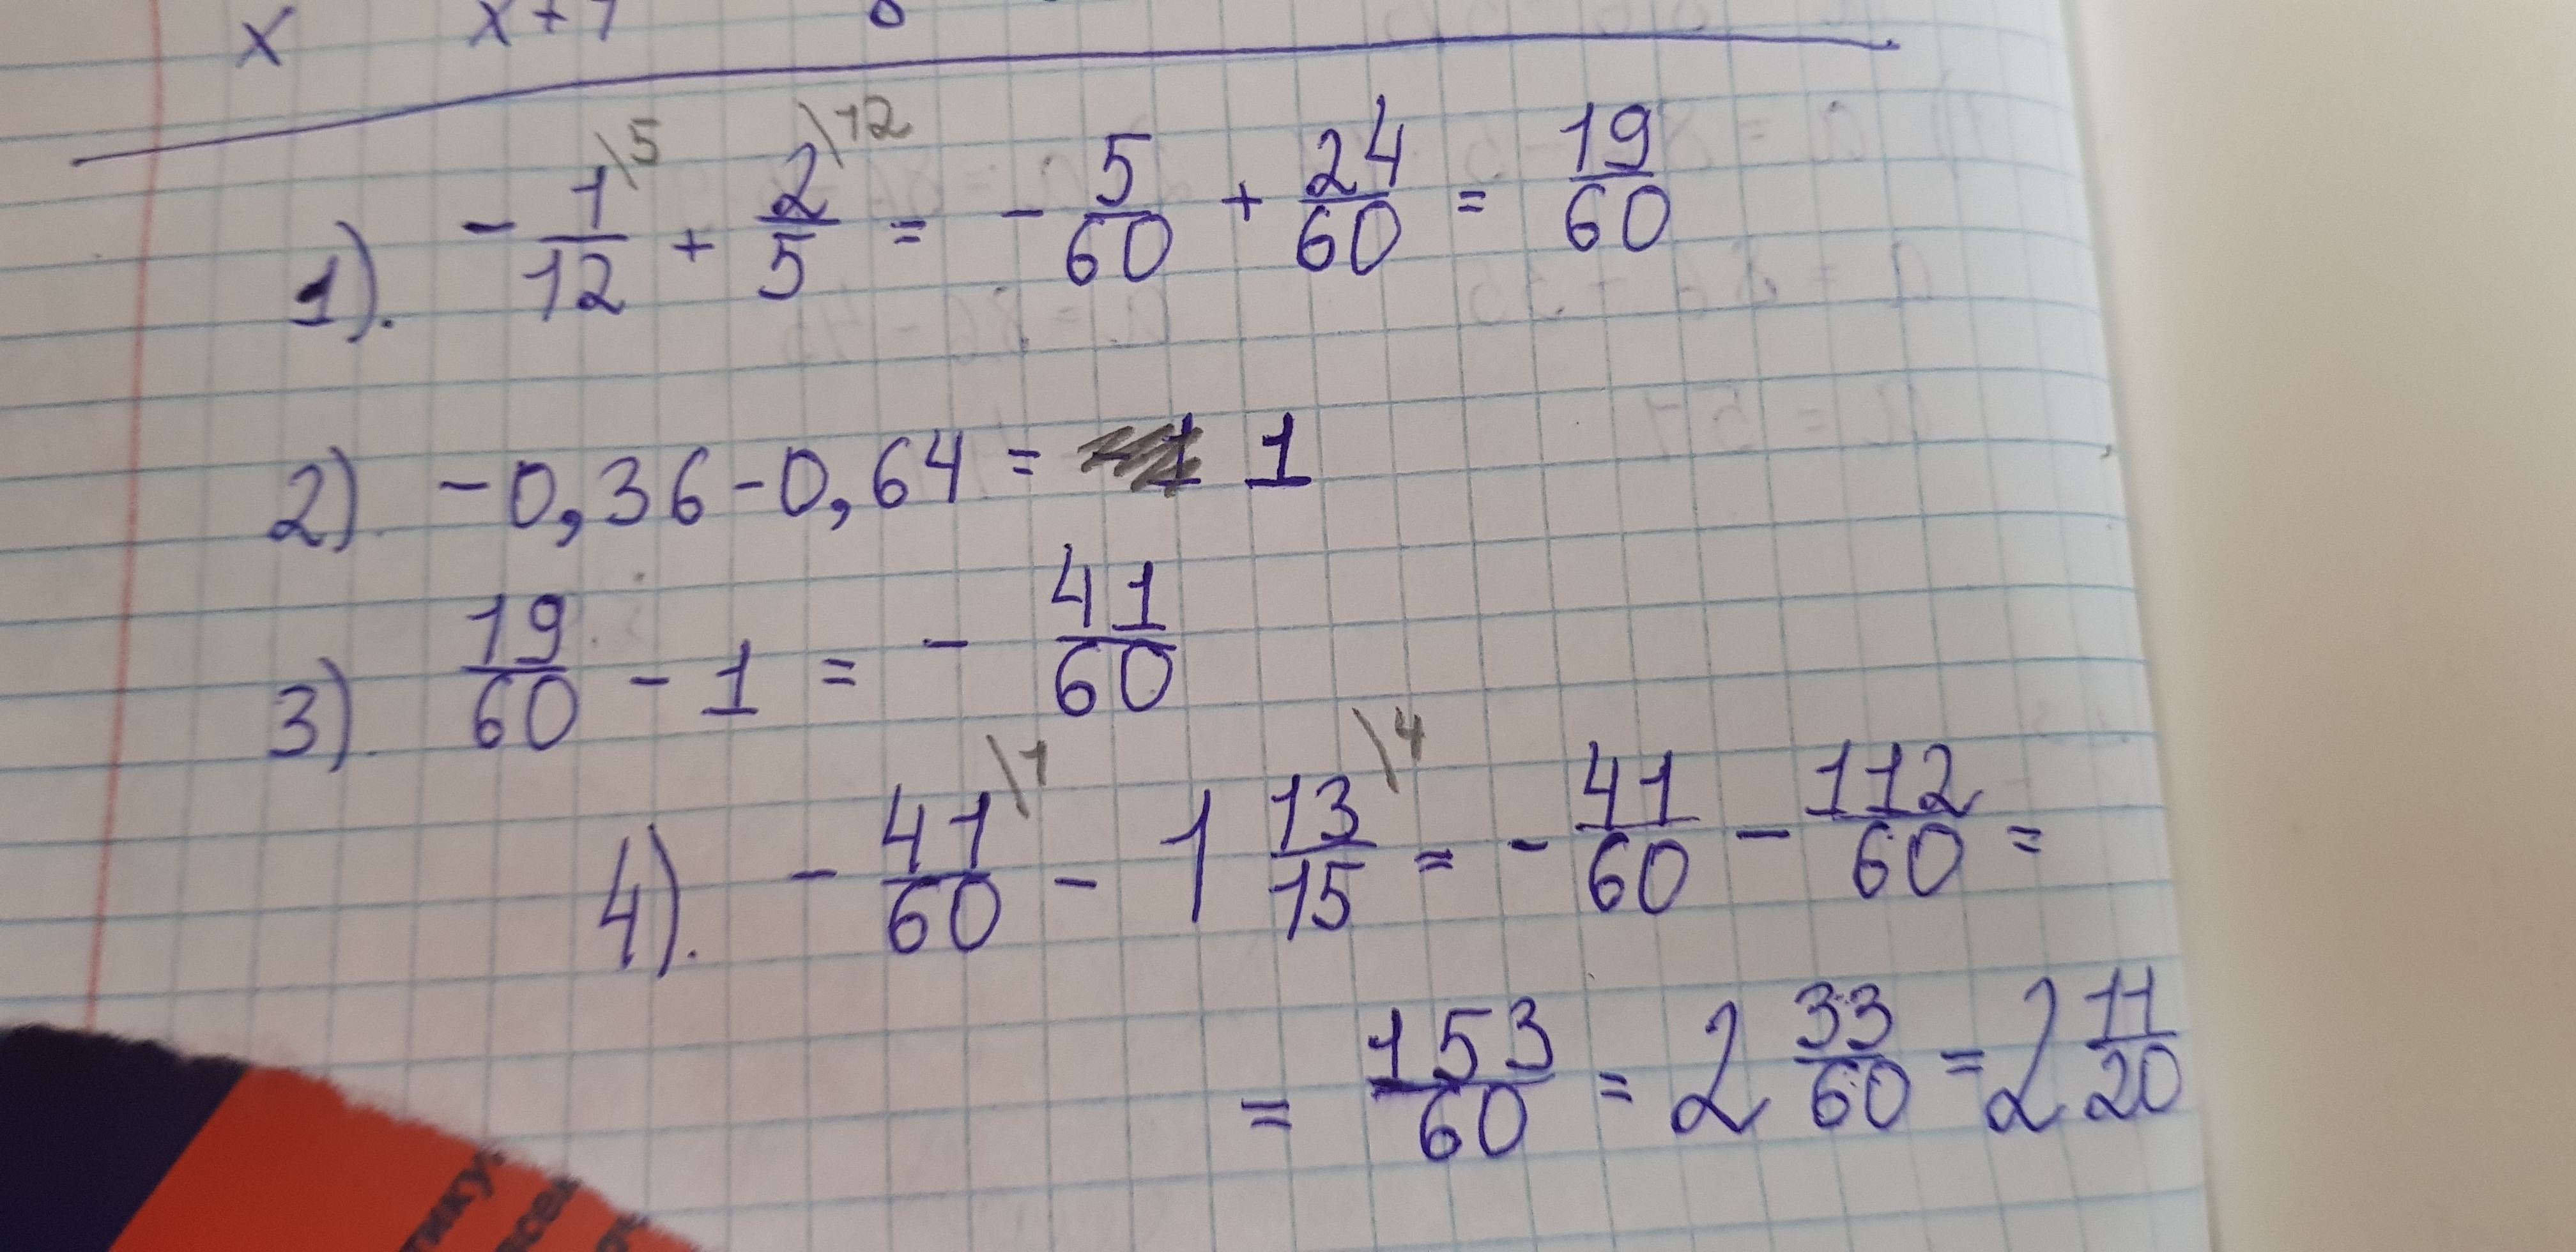 x x+7
1). - 1/12 \5 + 2/5 \12 = - 5/60 + 24/60 = 19/60
2) -0,36-0,64 = 1
3). 19/60 - 1 = - 41/60
4). - 41/60 \1 - 1 13/15 \4 = - 41/60 - 112/60 =
= 153/60 = 2 33/60 = 2 11/20